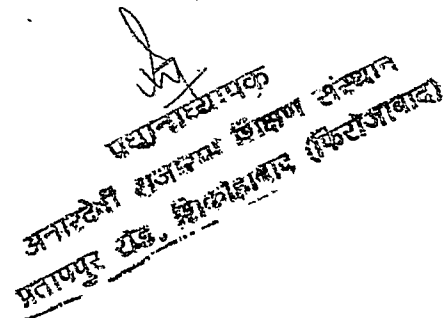 प्रधानाध्यापक
अनारदेवी राजाराम शिक्षण संस्थान
प्रतापपुर रोड, शिकोहाबाद (फिरोजाबाद)